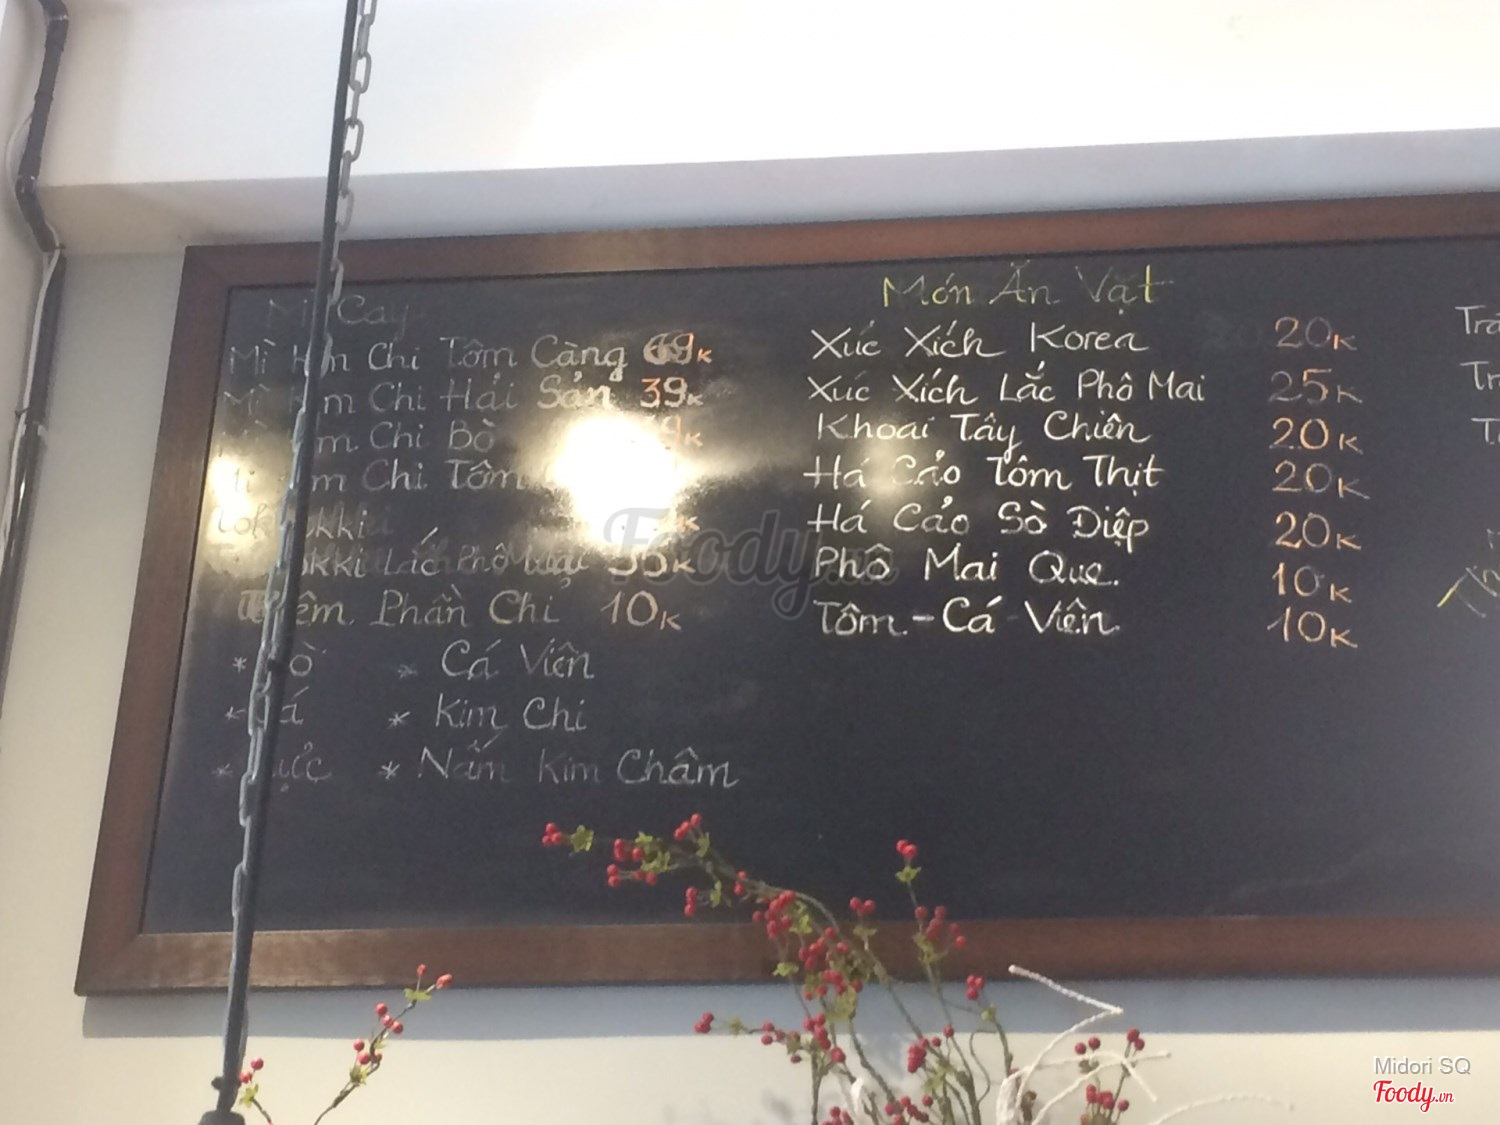 Mì Cay
Mì Kim Chi Tôm Càng 69K
Mì Kim Chi Hải Sản 39K
Mì Kim Chi Bò
Mì Kim Chi Tôm
Tokbokki
Tokbokki Lắc Phô Mai 35K
Thêm Phần Chỉ 10K
* Bò * Cá Viên
* Cá * Kim Chi
* Mực * Nấm Kim Châm
Món Ăn Vặt
Xúc Xích Korea 20K
Xúc Xích Lắc Phô Mai 25K
Khoai Tây Chiên 20K
Há Cảo Tôm Thịt 20K
Há Cảo Sò Điệp 20K
Phô Mai Que. 10K
Tôm - Cá Viên 10K
Foody.vn
Midori SQ
Foody.vn